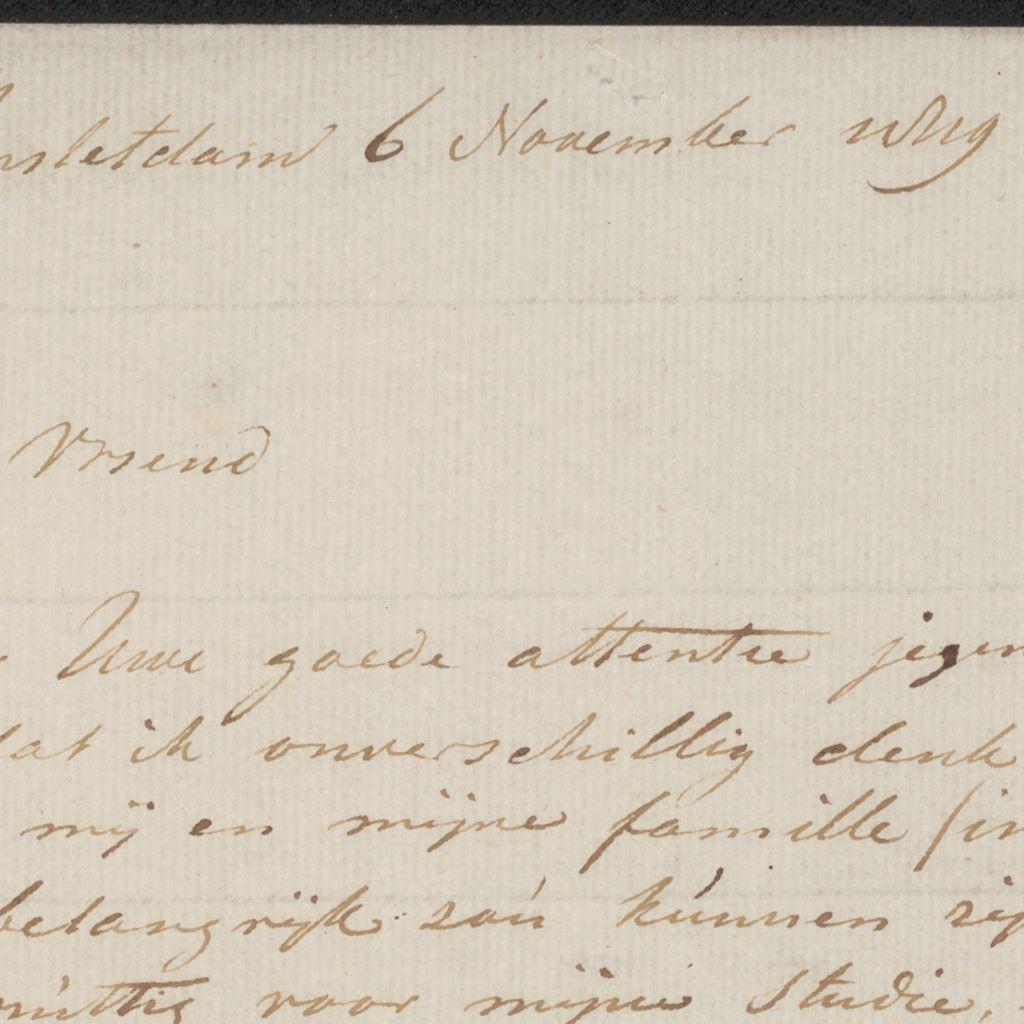 Amsteldam 6 November
Vriend
Uwe goede attentie jegen
dat ik onverschillig denk
mij en mijne famille (in
belangrijk zoú kúnnen zijn
núttig voor mijne studie,